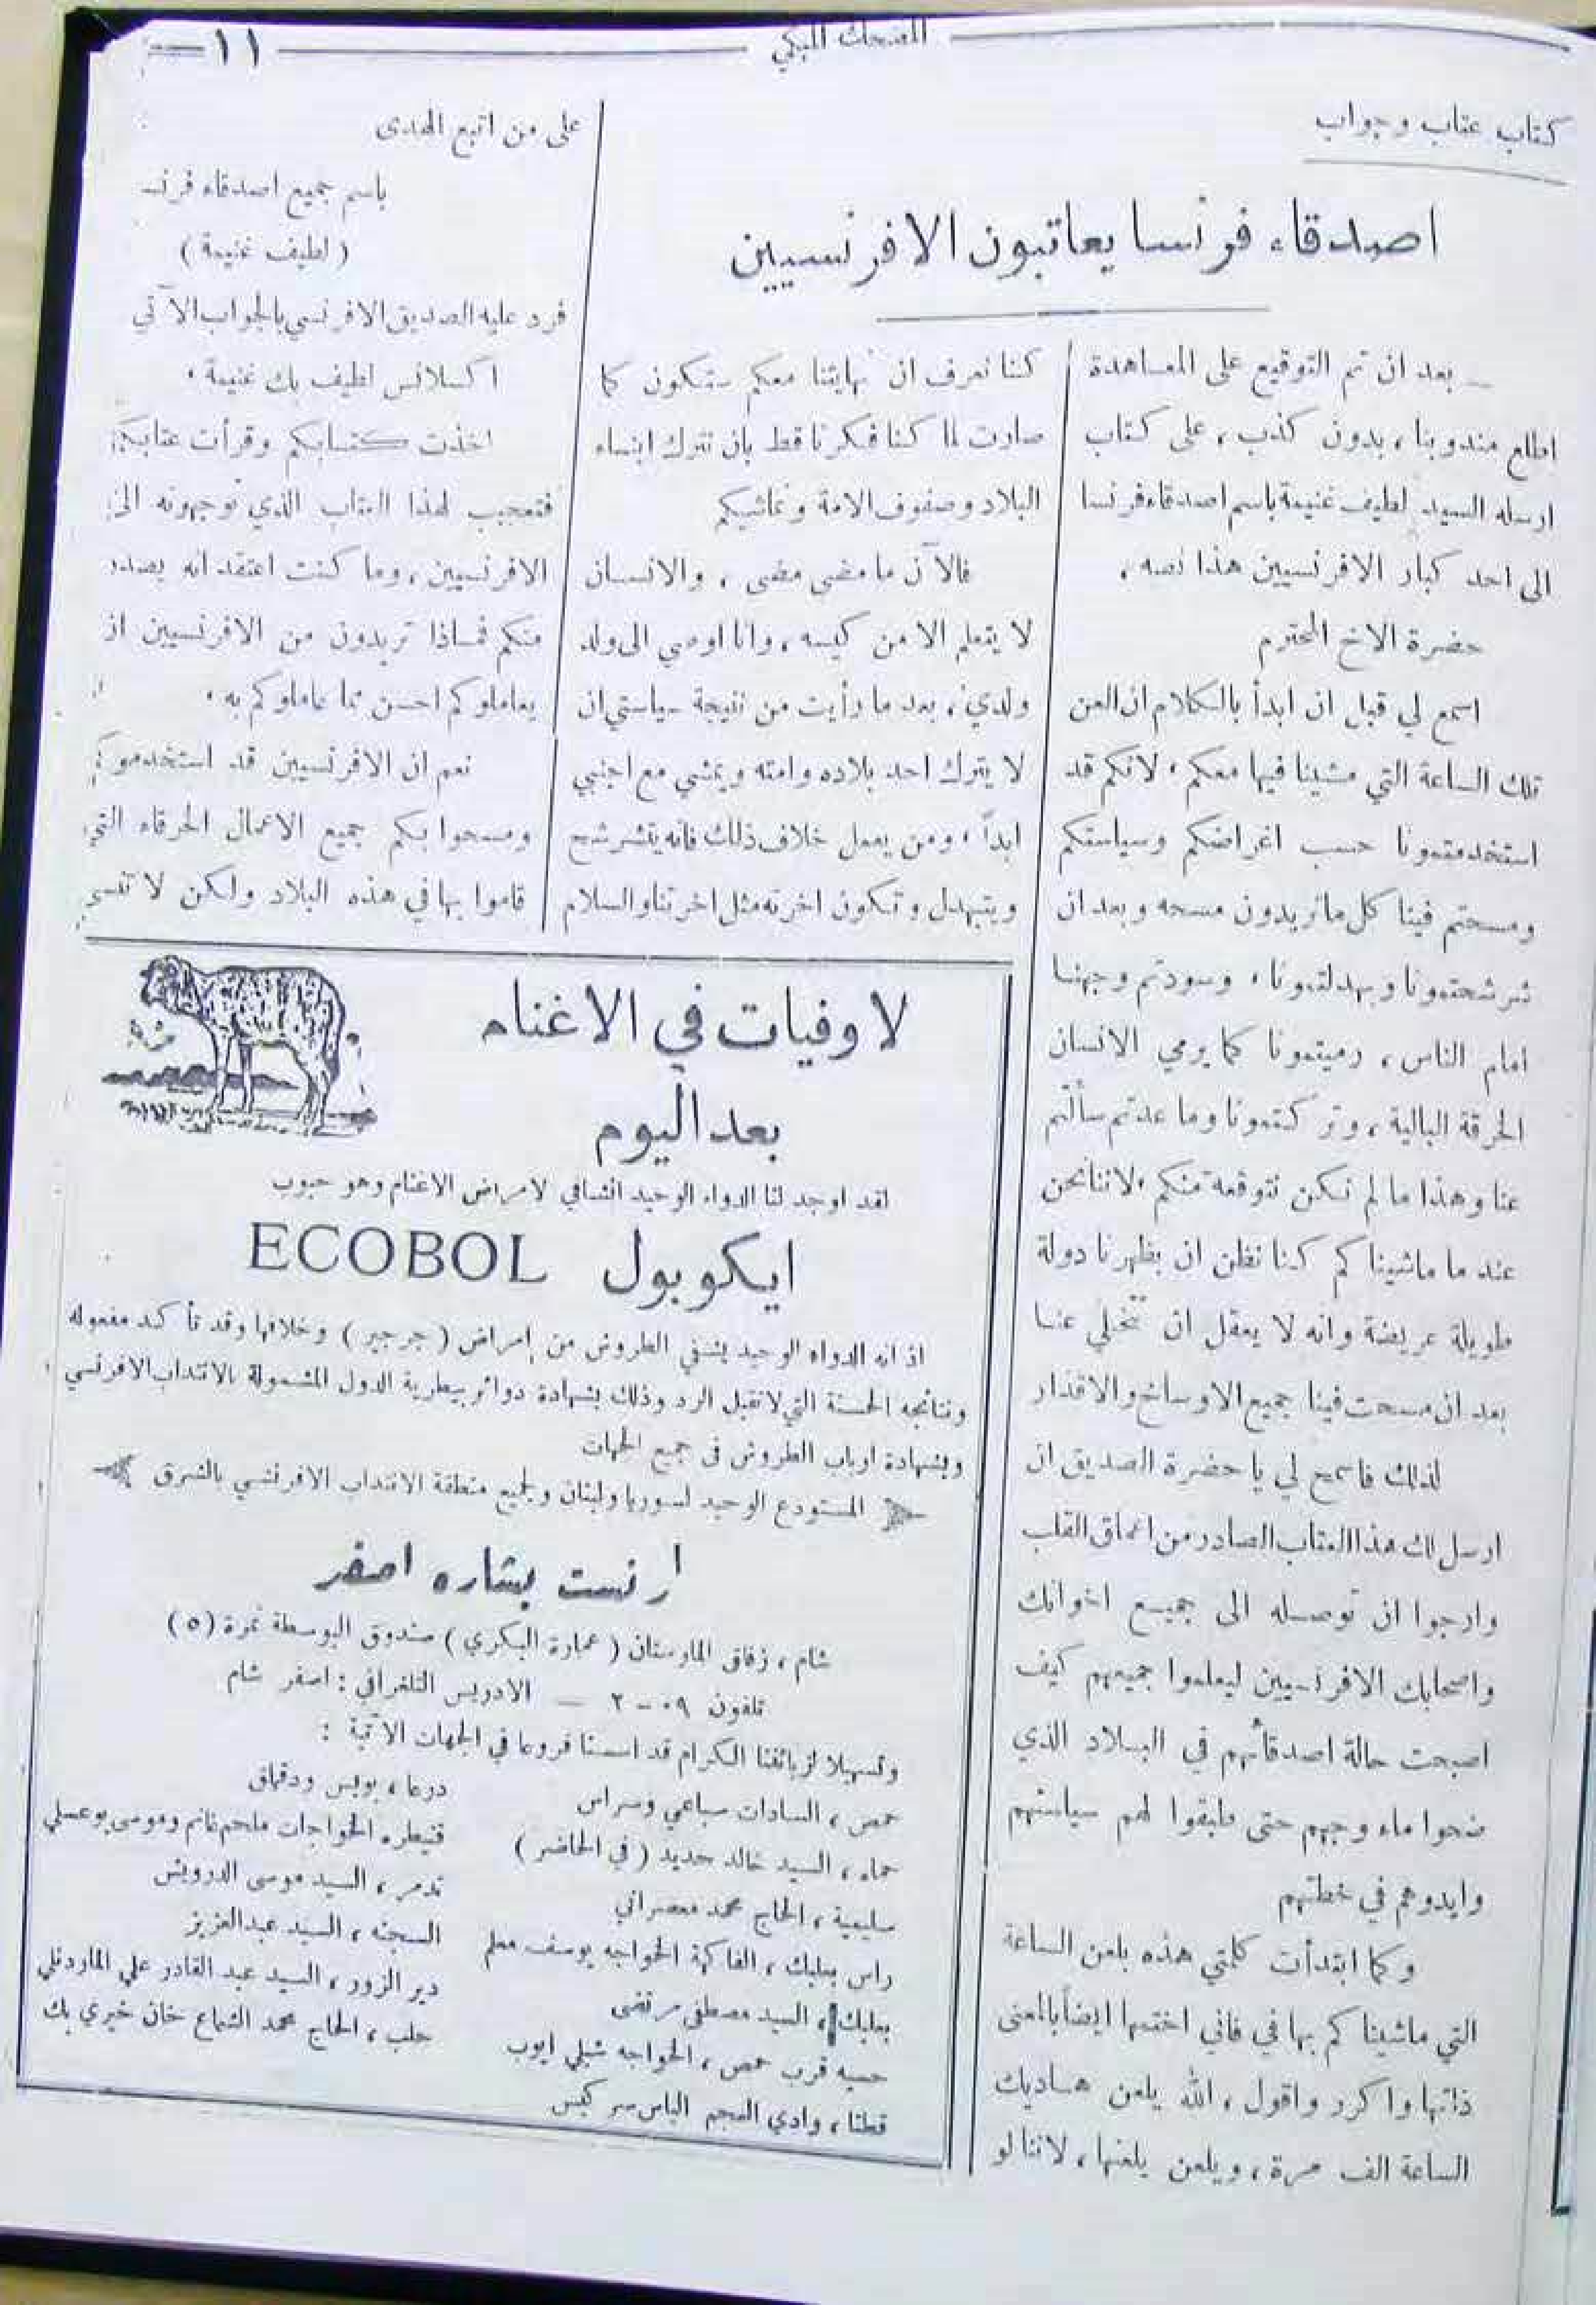 المضحك المبكي
١١
كتاب عتاب وجواب
اصدقاء فرنسا يعاتبون الافرنسيين
بعد ان تم التوقيع على المعاهدة
اطلع مندوبنا ، بدون كذب ، على كتاب
ارسله السيد لطيف غنيمة باسم اصدقاء فرنسا
الى احد كبار الافرنسيين هذا نصه ،
حضرة الاخ المحترم
اسمح لي قبل ان ابدأ بالكلام ان العن
تلك الساعة التي مشينا فيها معكم ، لانكم قد
استخدمتمونا حسب اغراضكم وسياستكم
ومسحتم فينا كل ما تريدون مسحه وبعد ان
شرشحتمونا وبهدلتمونا ، وسودتم وجهنا
امام الناس ، رميتمونا كما يرمي الانسان
الخرقة البالية ، وتركتمونا وما عدتم سألتم
عنا وهذا ما لم نكن نتوقعه منكم ، لاننا نحن
عند ما ماشيناكم كنا نظن ان بظهرنا دولة
طويلة عريضة وانه لا يعقل ان تتخلي عنا
بعد ان مسحت فينا جميع الاوساخ والاقذار
لذلك فاسمح لي يا حضرة الصديق ان
ارسل لك هذا العتاب الصادر من اعماق القلب
وارجوا ان توصله الى جميع اخوانك
واصحابك الافرنسيين ليعلموا جميعهم كيف
اصبحت حالة اصدقائهم في البلاد الذي
ضحوا ماء وجههم حتى طبقوا لهم سياستهم
وايدوهم في خطتهم
وكما ابتدأت كلمتي هذه بلعن الساعة
التي ماشيناكم بها في فاني اختمها ايضاً بالمعنى
ذاتها واكرر واقول ، الله يلعن هساديك
الساعة الف مرة ، ويلعن يلعنها ، لاننا لو
كنا نعرف ان نهايتنا معكم ستكون كما
صارت لما كنا فكرنا قط بان نترك ابناء
البلاد وصفوف الامة ونماشيكم
فالآن ما مضى مضى ، والانسان
لا يتعلم الا من كيسه ، وانا اوصي الى ولد
ولدي ، بعد ما رأيت من نتيجة سياستي ان
لا يترك احد بلاده وامته ويمشي مع اجنبي
ابداً ، ومن يعمل خلاف ذلك فانه يتشرشح
ويتبهدل وتكون اخرته مثل اخرتنا والسلام
على من اتبع الهدى
باسم جميع اصدقاء فرنسـ
( لطيف غنيمة )
فرد عليه الصديق الافرنسي بالجواب الآتي
اكسلانس لطيف بك غنيمة ،
اخذت كتابكم وقرأت عتابكم
فتعجبب لهذا العتاب الذي توجهونه الى
الافرنسيين ، وما كنت اعتقد انه يصدر
منكم فماذا تريدون من الافرنسيين ان
يعاملوكم احسن مما عاملوكم به ،
نعم ان الافرنسيين قد استخدموكم
ومسحوا بكم جميع الاعمال الخرقاء التي
قاموا بها في هذه البلاد ولكن لا تنسى
لا وفيات في الاغنام
بعد اليوم
لقد اوجد لنا الدواء الوحيد الشافي لامراض الاغنام وهو حبوب
ايكوبول ECOBOL
اذ انه الدواء الوحيد يشفي الطروش من امراض ( جرجير ) وخلافها وقد تأكد مفعوله
ونتائجه الحسنة التي لا تقبل الرد وذلك بشهادة دوائر بيطرية الدول المشمولة بالانتداب الافرنسي
وبشهادة ارباب الطروش في جميع الجهات
المستودع الوحيد لسوريا ولبنان ولجميع منطقة الانتداب الافرنسي بالشرق
ارنست بشاره اصفر
شام ، زقاق المارستان ( عمارة البكري ) صندوق البوسطة نمرة (٥)
تلفون ٠٩ - ٢ — الادريس التلغرافي : اصفر شام
وتسهيلا لزبائننا الكرام قد اسسنا فروعا في الجهات الآتية :
حمص ، السادات سباعي وسراس
حماه ، السيد خالد حديد ( في الحاضر )
سليمية ، الحاج محمد معصراني
راس بعلبك ، الفاكهة الخواجه يوسف معلم
بعلبك ، السيد مصطفى مرتضى
حسيه قرب حمص ، الخواجه شبلي ايوب
قطنا ، وادي العجم الياس سركيس
درعا ، بويس ودقماق
قنيطره الخواجات ملحم غانم وموسى بو عسلي
تدمر ، السيد موسى الدرويش
السخنه ، السيد عبد العزيز
دير الزور ، السيد عبد القادر علي الماردنلي
حلب ، الحاج محمد الشماع خان خيري بك